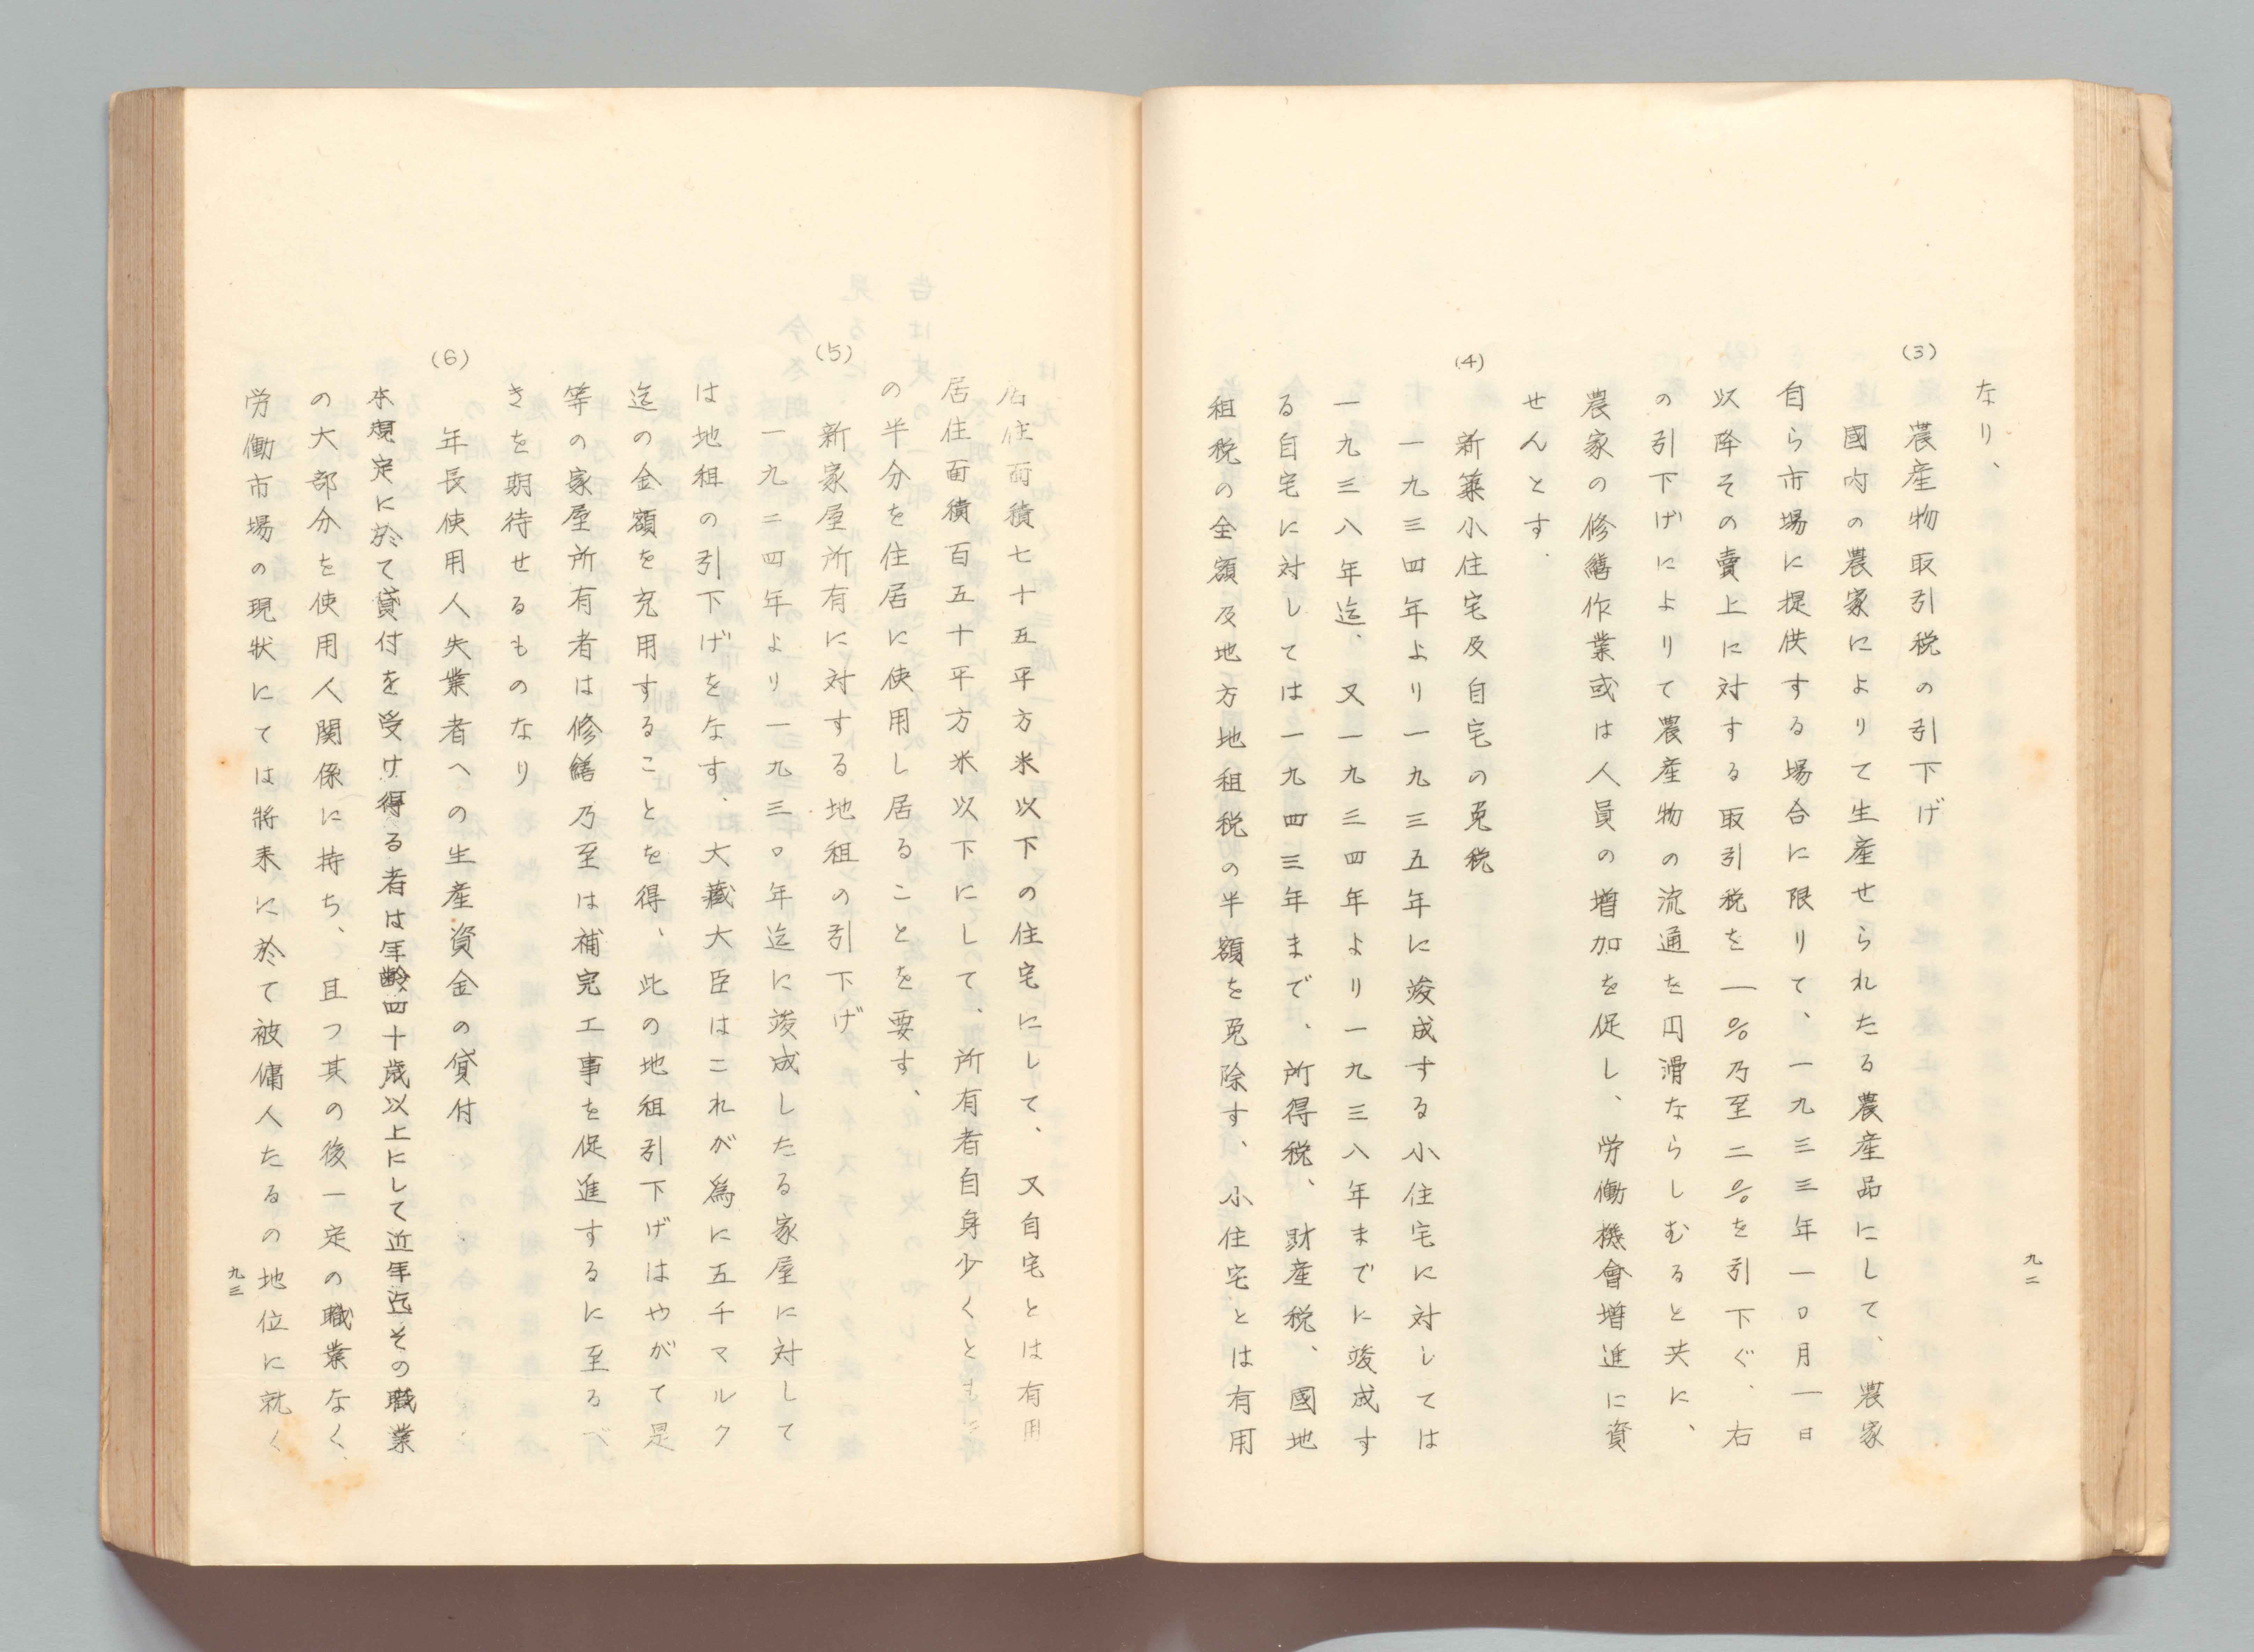 なり、
(3) 農産物取引税の引下げ
國内の農家によりて生産せられたる農産品にして、農家
自ら市場に提供する場合に限りて、一九三三年一〇月一日
以降その賣上に対する取引税を一％乃至二％を引下ぐ、右
の引下げによりて農産物の流通を円滑ならしむると共に、
農家の修繕作業或は人員の増加を促し、労働機會増進に資
せんとす.
(4) 新築小住宅及自宅の免税
一九三四年より一九三五年に竣成する小住宅に対しては
一九三八年迄、又一九三四年より一九三八年までに竣成す
る自宅に対しては一九四三年まで、所得税、財産税、國地
租税の全額及地方地租税の半額を免除す、小住宅とは有用
九二
居住面積七十五平方米以下の住宅にして、又自宅とは有用
居住面積百五十平方米以下にして、所有者自身少くとも
の半分を住居に使用し居ることを要す、
(5) 新家屋所有に対する地租の引下げ
一九二四年より一九三〇年迄に竣成したる家屋に対して
は地租の引下げをなす、大藏大臣はこれが為に五千マルク
迄の金額を充用することを得、此の地租引下げはやがて是
等の家屋所有者は修繕乃至は補完工事を促進するに至るべ
きを期待せるものなり
(6) 年長使用人失業者への生産資金の貸付
本規定に於て貸付を受け得る者は年齢四十歳以上にして近年迄その職業
の大部分を使用人関係に持ち、且つ其の後一定の職業なく、
労働市場の現状にては將来に於て被傭人たるの地位に就く
九三